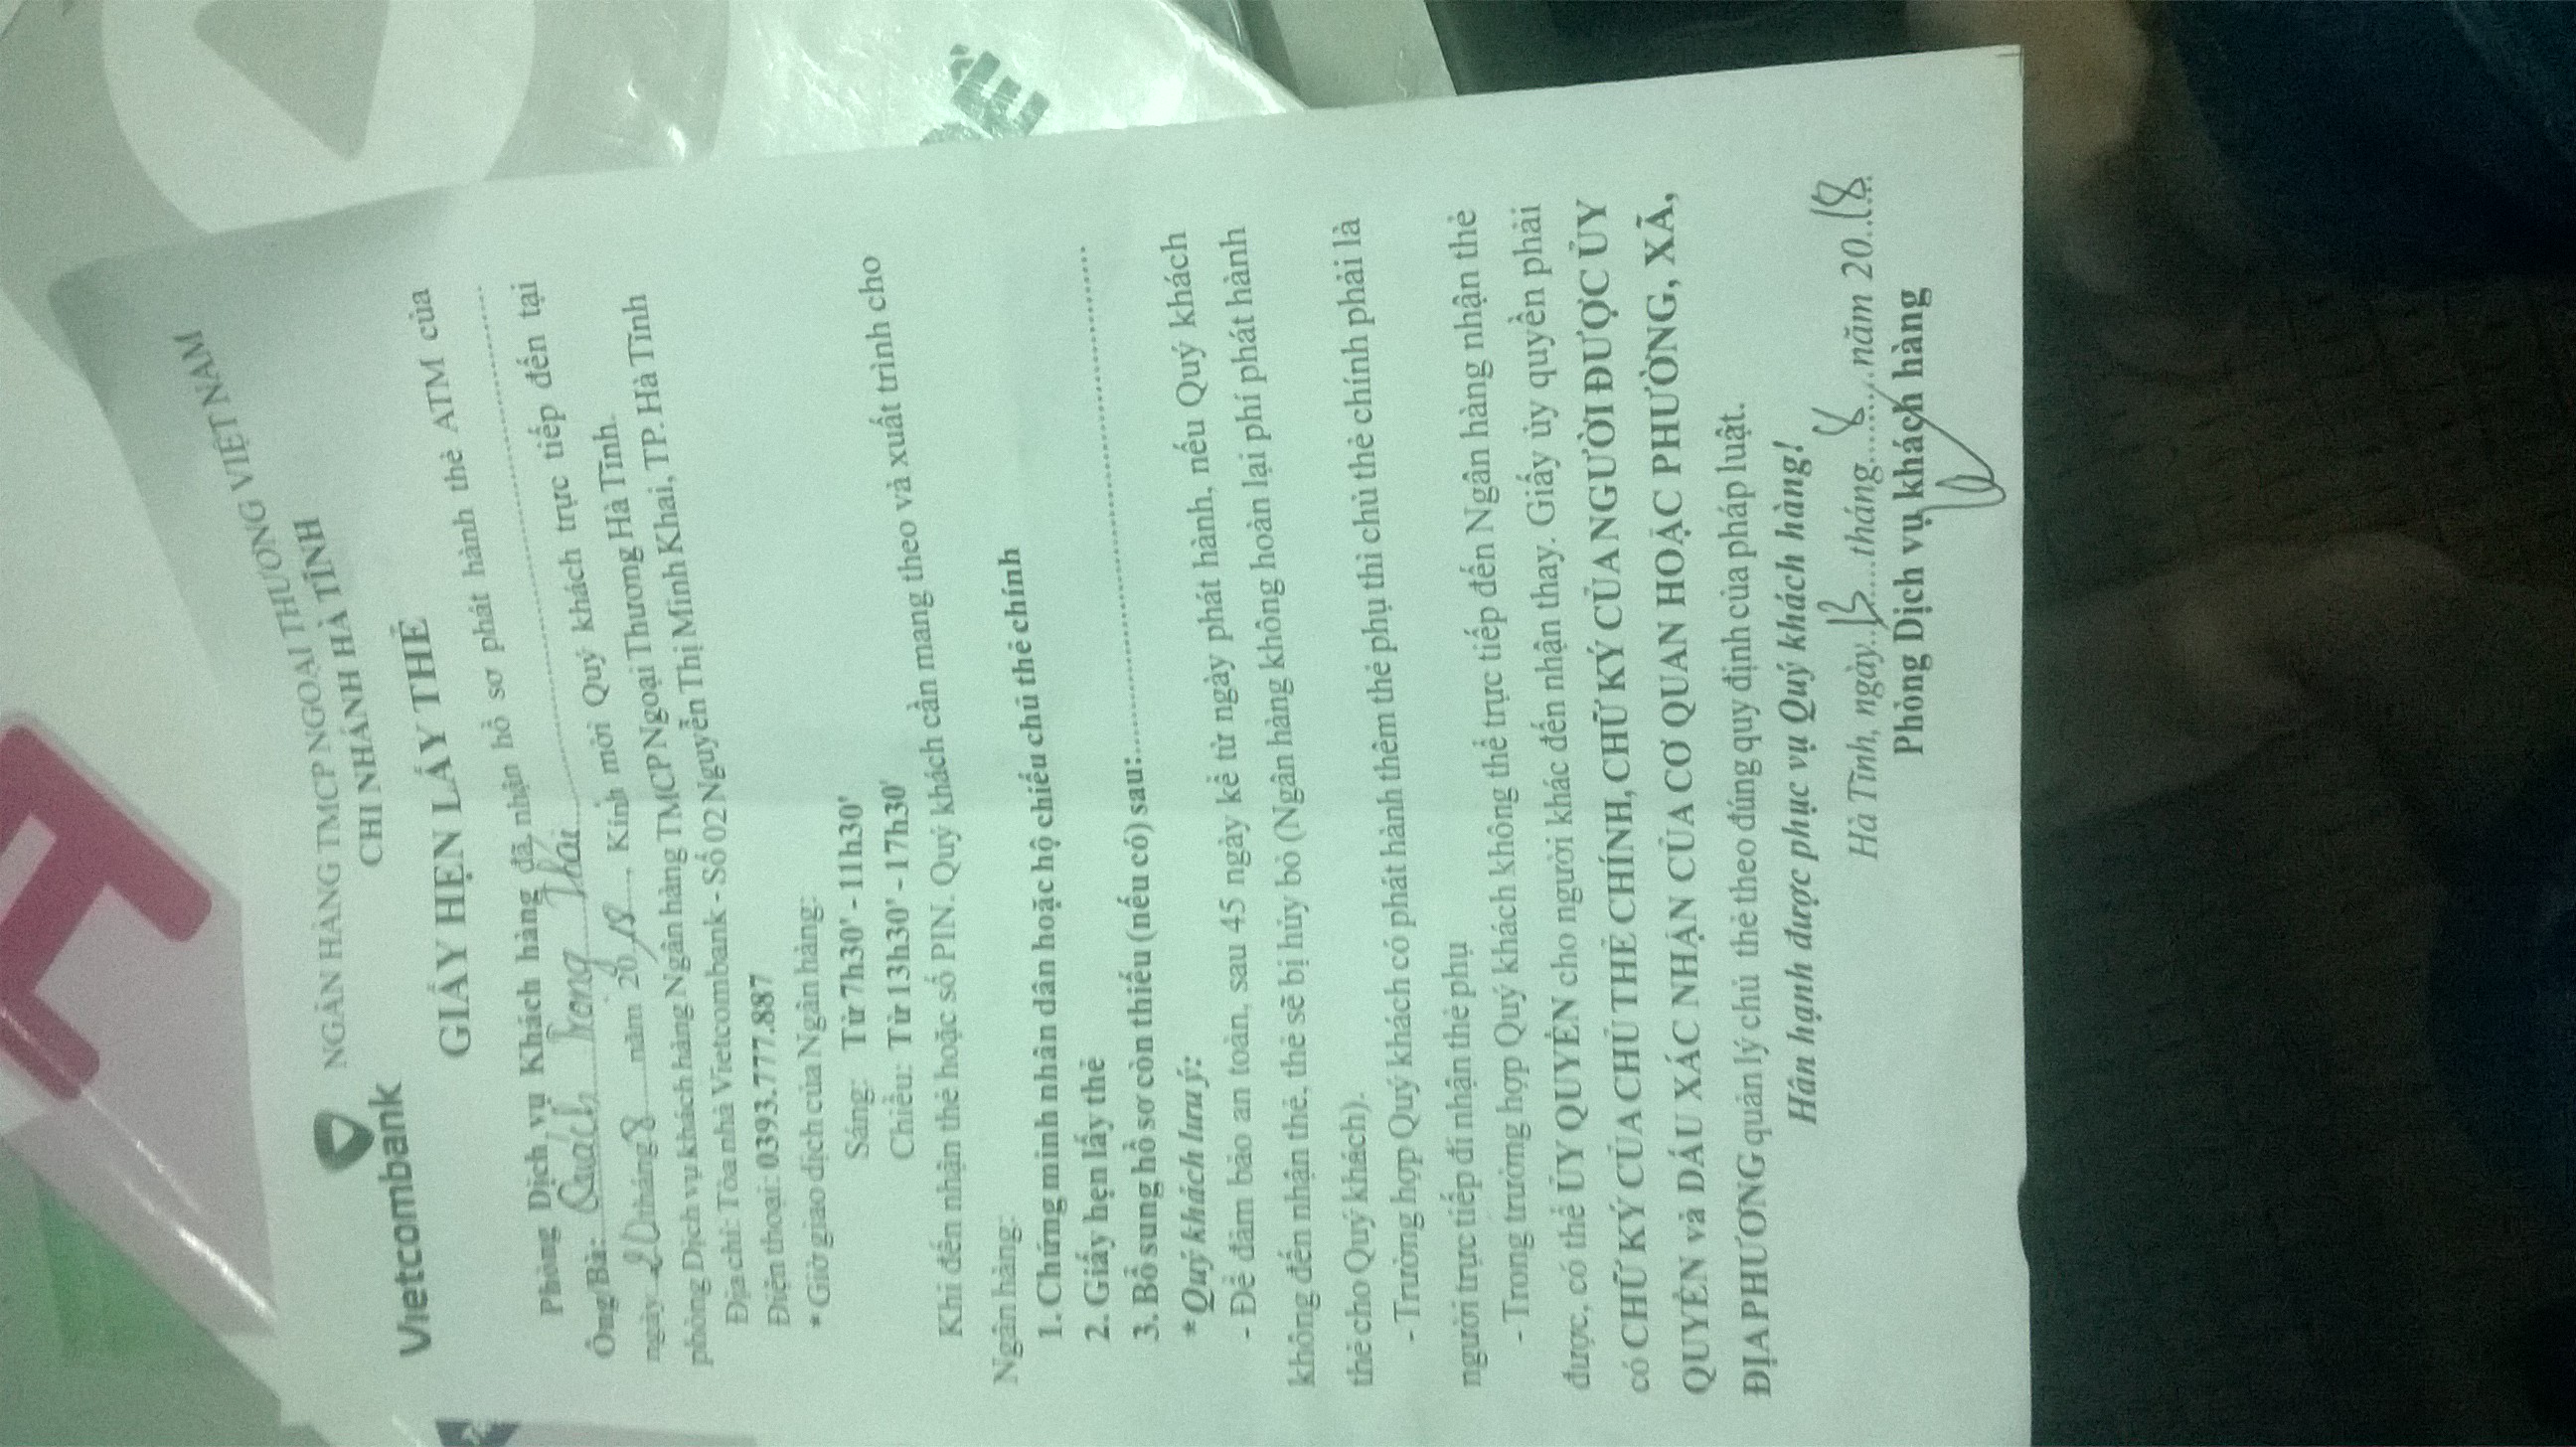 Vietcombank
NGÂN HÀNG TMCP NGOẠI THƯƠNG VIỆT NAM
CHI NHÁNH HÀ TĨNH
GIẤY HẸN LẤY THẺ
Phòng Dịch vụ Khách hàng đã nhận hồ sơ phát hành thẻ ATM của
Ông/Bà: Quách Trọng Thái
ngày 20 tháng 8 năm 2018, Kính mời Quý khách trực tiếp đến tại
phòng Dịch vụ khách hàng Ngân hàng TMCP Ngoại Thương Hà Tĩnh.
Địa chỉ: Tòa nhà Vietcombank - Số 02 Nguyễn Thị Minh Khai, TP. Hà Tĩnh
Điện thoại: 0393.777.887
* Giờ giao dịch của Ngân hàng:
Sáng: Từ 7h30' - 11h30'
Chiều: Từ 13h30' - 17h30'
Khi đến nhận thẻ hoặc số PIN. Quý khách cần mang theo và xuất trình cho
Ngân hàng:
1. Chứng minh nhân dân hoặc hộ chiếu chủ thẻ chính
2. Giấy hẹn lấy thẻ
3. Bổ sung hồ sơ còn thiếu (nếu có) sau:
* Quý khách lưu ý:
- Để đảm bảo an toàn, sau 45 ngày kể từ ngày phát hành, nếu Quý khách
không đến nhận thẻ, thẻ sẽ bị hủy bỏ (Ngân hàng không hoàn lại phí phát hành
thẻ cho Quý khách).
- Trường hợp Quý khách có phát hành thêm thẻ phụ thì chủ thẻ chính phải là
người trực tiếp đi nhận thẻ phụ
- Trong trường hợp Quý khách không thể trực tiếp đến Ngân hàng nhận thẻ
được, có thể ỦY QUYỀN cho người khác đến nhận thay. Giấy ủy quyền phải
có CHỮ KÝ CỦA CHỦ THẺ CHÍNH, CHỮ KÝ CỦA NGƯỜI ĐƯỢC ỦY
QUYỀN và DẤU XÁC NHẬN CỦA CƠ QUAN HOẶC PHƯỜNG, XÃ,
ĐỊA PHƯƠNG quản lý chủ thẻ theo đúng quy định của pháp luật.
Hân hạnh được phục vụ Quý khách hàng!
Hà Tĩnh, ngày 13 tháng 8 năm 2018
Phòng Dịch vụ khách hàng